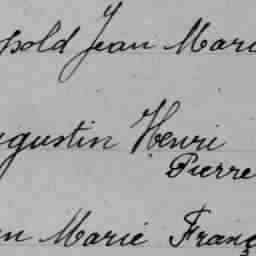 pold Jean Mari
gustin Henri
Pierre
n Marie Franç